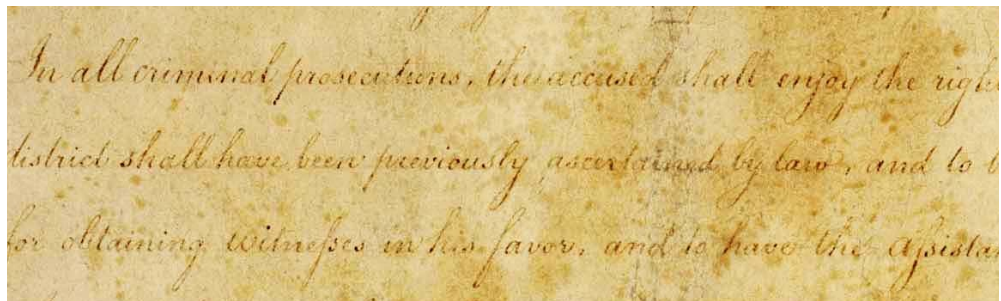 In all criminal prosecutions, the accused shall enjoy the right
district shall have been previously ascertained by law, and to b
for obtaining witneſses in his favor, and to have the Aſsistan